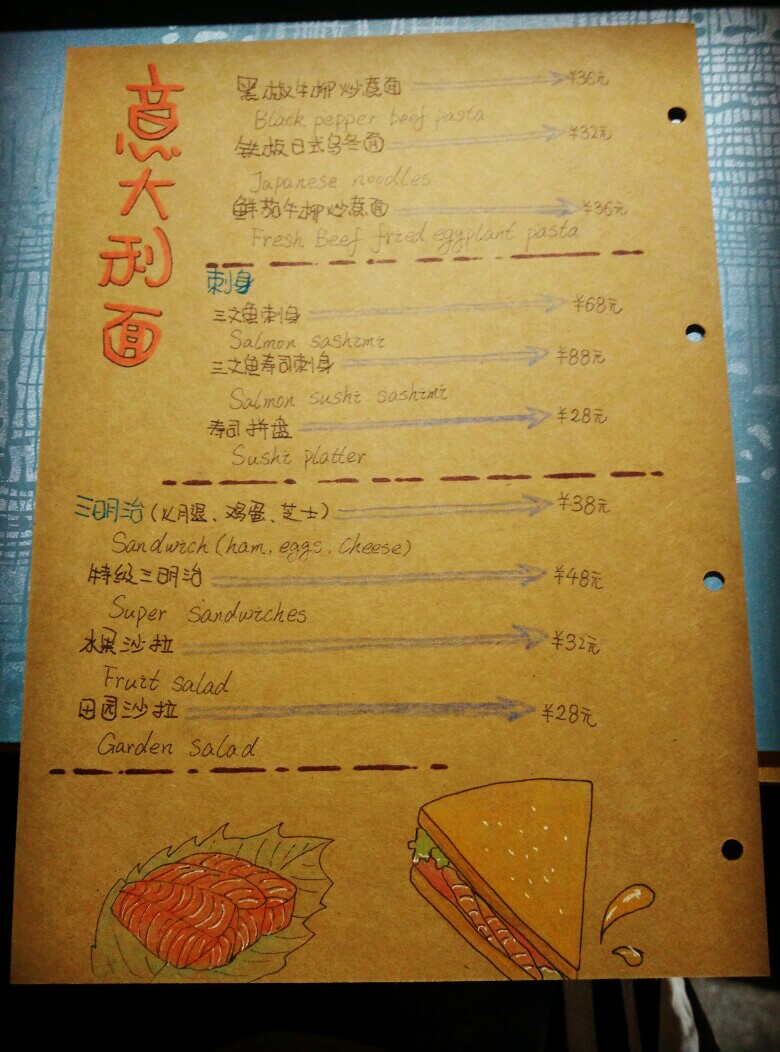 意大利面
黑椒牛柳炒意面 ¥36元
Black pepper beef pasta
铁板日式乌冬面 ¥32元
Japanese noodles
鲜茄牛柳炒意面 ¥36元
Fresh Beef fried eggplant pasta
刺身
三文鱼刺身 ¥68元
Salmon sashimi
三文鱼寿司刺身 ¥88元
Salmon sushi sashimi
寿司拼盘 ¥28元
Sushi platter
三明治(火腿、鸡蛋、芝士) ¥38元
Sandwich (ham, eggs, cheese)
特级三明治 ¥48元
Super sandwiches
水果沙拉 ¥32元
Fruit salad
田园沙拉 ¥28元
Garden salad